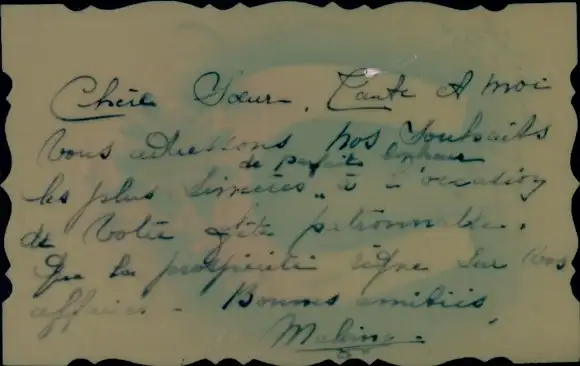 Chère Sœur, Tante et moi
vous adressons nos souhaits
de parfait bonheur
les plus sincères à l'occasion
de votre fête patronnale.
Que la prospérité règne sur vos
affaires. Bonnes amitiés